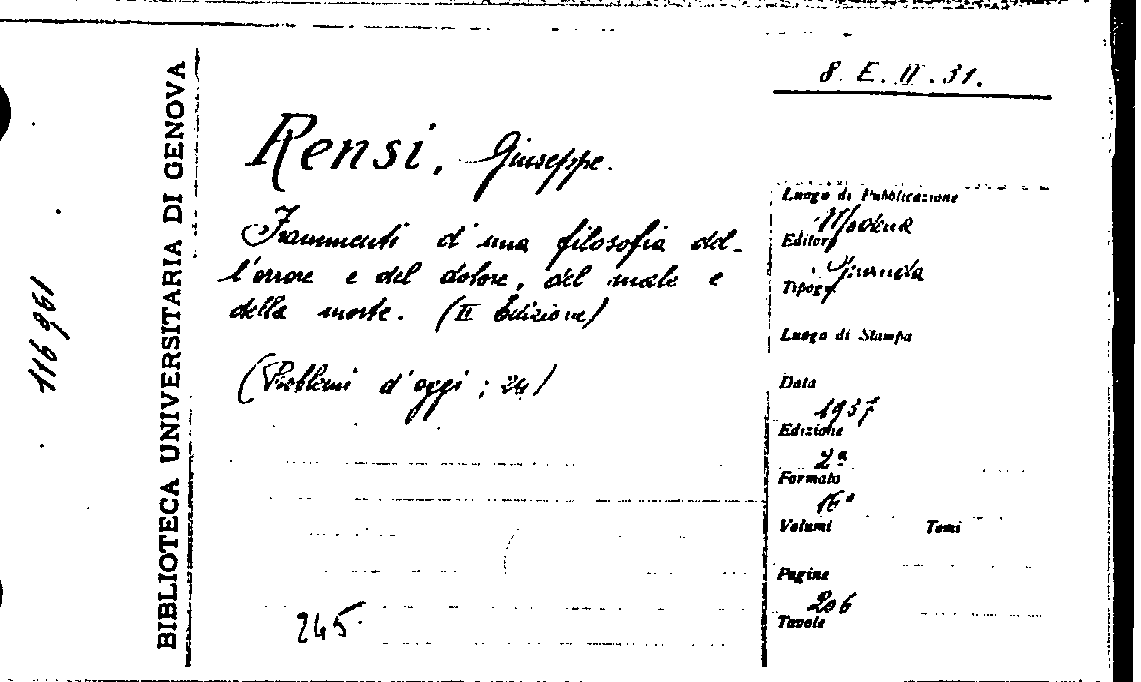 8. E. II. 31.
BIBLIOTECA UNIVERSITARIA DI GENOVA
116961
Rensi, Giuseppe.
Frammenti d'una filosofia del-
l'errore e del dolore, del male e
della morte. (II Edizione)
(Problemi d'oggi; 24)
245.
Luogo di Pubblicazione
Modena
Editore
Guanda
Tipogr.
Luogo di Stampa
Data
1937
Edizione
2ª
Formato
16°
Volumi Tomi
Pagine
206
Tavole